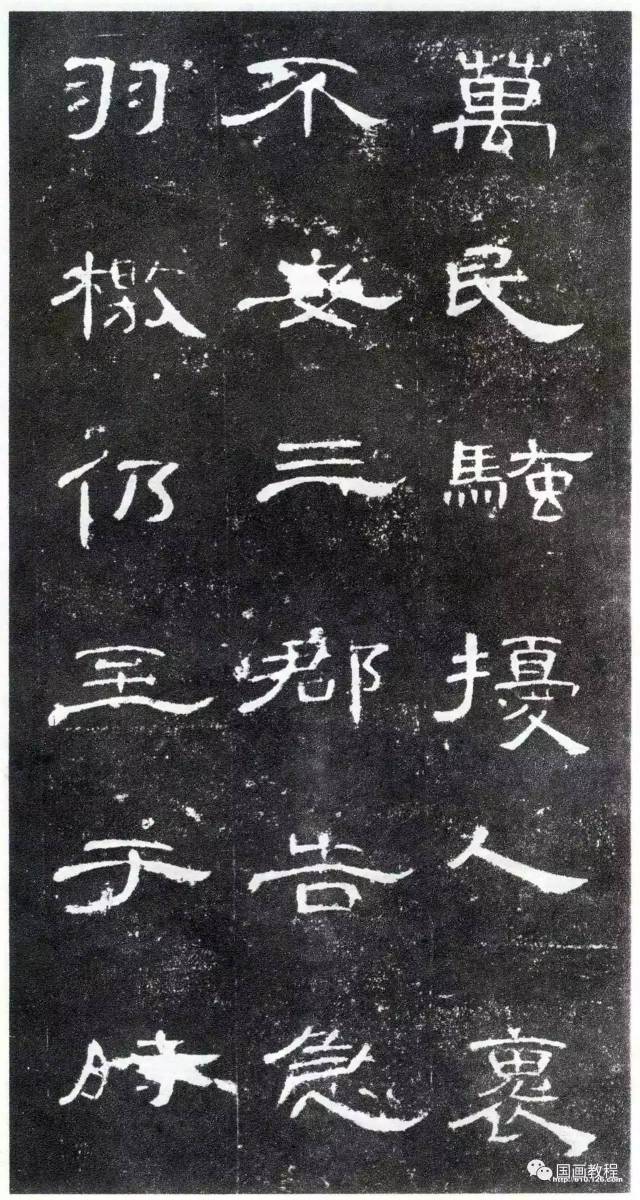 萬民騷擾人裹
不安三郡告急
羽檄仍至于時
国画教程
http://610.126.com